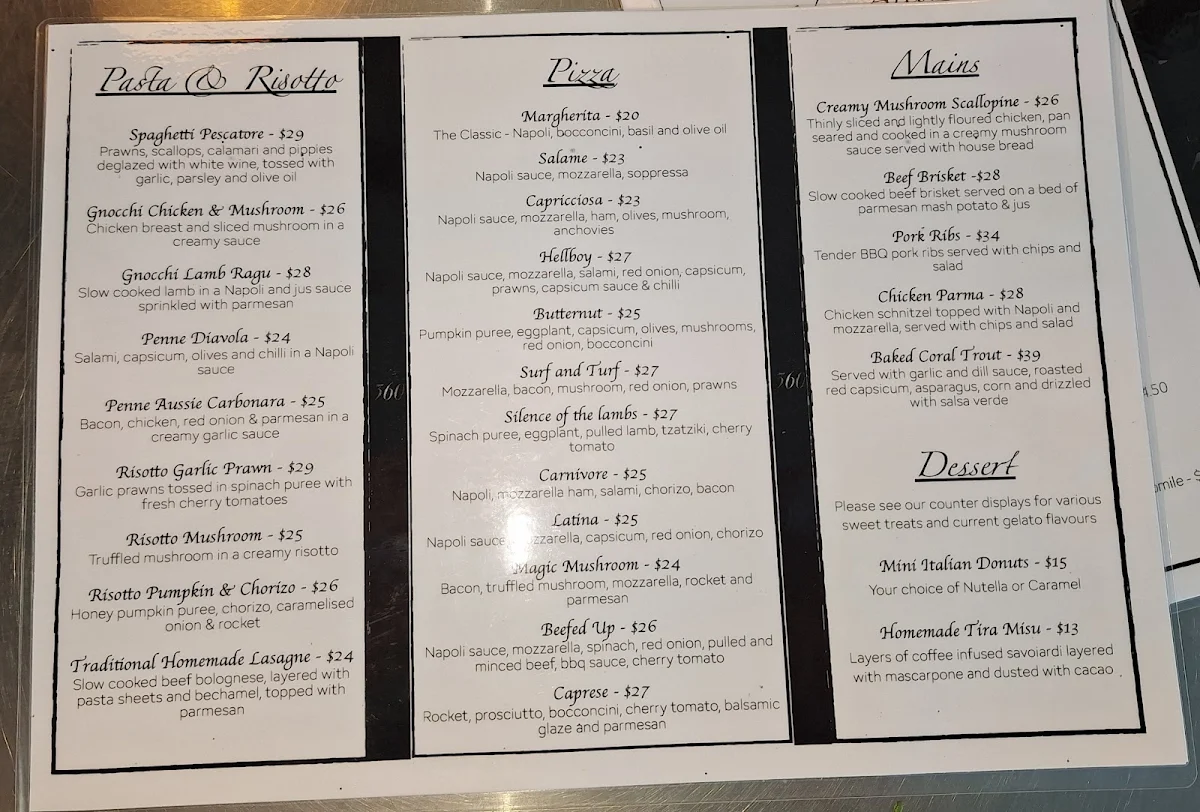 Pasta & Risotto
Spaghetti Pescatore - $29
Prawns, scallops, calamari and pippies
deglazed with white wine, tossed with
garlic, parsley and olive oil
Gnocchi Chicken & Mushroom - $26
Chicken breast and sliced mushroom in a
creamy sauce
Gnocchi Lamb Ragu - $28
Slow cooked lamb in a Napoli and jus sauce
sprinkled with parmesan
Penne Diavola - $24
Salami, capsicum, olives and chilli in a Napoli
sauce
Penne Aussie Carbonara - $25
Bacon, chicken, red onion & parmesan in a
creamy garlic sauce
Risotto Garlic Prawn - $29
Garlic prawns tossed in spinach puree with
fresh cherry tomatoes
Risotto Mushroom - $25
Truffled mushroom in a creamy risotto
Risotto Pumpkin & Chorizo - $26
Honey pumpkin puree, chorizo, caramelised
onion & rocket
Traditional Homemade Lasagne - $24
Slow cooked beef bolognese, layered with
pasta sheets and bechamel, topped with
parmesan
360
Pizza
Margherita - $20
The Classic - Napoli, bocconcini, basil and olive oil
Salame - $23
Napoli sauce, mozzarella, soppressa
Capricciosa - $23
Napoli sauce, mozzarella, ham, olives, mushroom,
anchovies
Hellboy - $27
Napoli sauce, mozzarella, salami, red onion, capsicum,
prawns, capsicum sauce & chilli
Butternut - $25
Pumpkin puree, eggplant, capsicum, olives, mushrooms,
red onion, bocconcini
Surf and Turf - $27
Mozzarella, bacon, mushroom, red onion, prawns
Silence of the lambs - $27
Spinach puree, eggplant, pulled lamb, tzatziki, cherry
tomato
Carnivore - $25
Napoli, mozzarella ham, salami, chorizo, bacon
Latina - $25
Napoli sauce, mozzarella, capsicum, red onion, chorizo
Magic Mushroom - $24
Bacon, truffled mushroom, mozzarella, rocket and
parmesan
Beefed Up - $26
Napoli sauce, mozzarella, spinach, red onion, pulled and
minced beef, bbq sauce, cherry tomato
Caprese - $27
Rocket, prosciutto, bocconcini, cherry tomato, balsamic
glaze and parmesan
360
Mains
Creamy Mushroom Scallopine - $26
Thinly sliced and lightly floured chicken, pan
seared and cooked in a creamy mushroom
sauce served with house bread
Beef Brisket -$28
Slow cooked beef brisket served on a bed of
parmesan mash potato & jus
Pork Ribs - $34
Tender BBQ pork ribs served with chips and
salad
Chicken Parma - $28
Chicken schnitzel topped with Napoli and
mozzarella, served with chips and salad
Baked Coral Trout - $39
Served with garlic and dill sauce, roasted
red capsicum, asparagus, corn and drizzled
with salsa verde
Dessert
Please see our counter displays for various
sweet treats and current gelato flavours
Mini Italian Donuts - $15
Your choice of Nutella or Caramel
Homemade Tira Misu - $13
Layers of coffee infused savoiardi layered
with mascarpone and dusted with cacao
.50